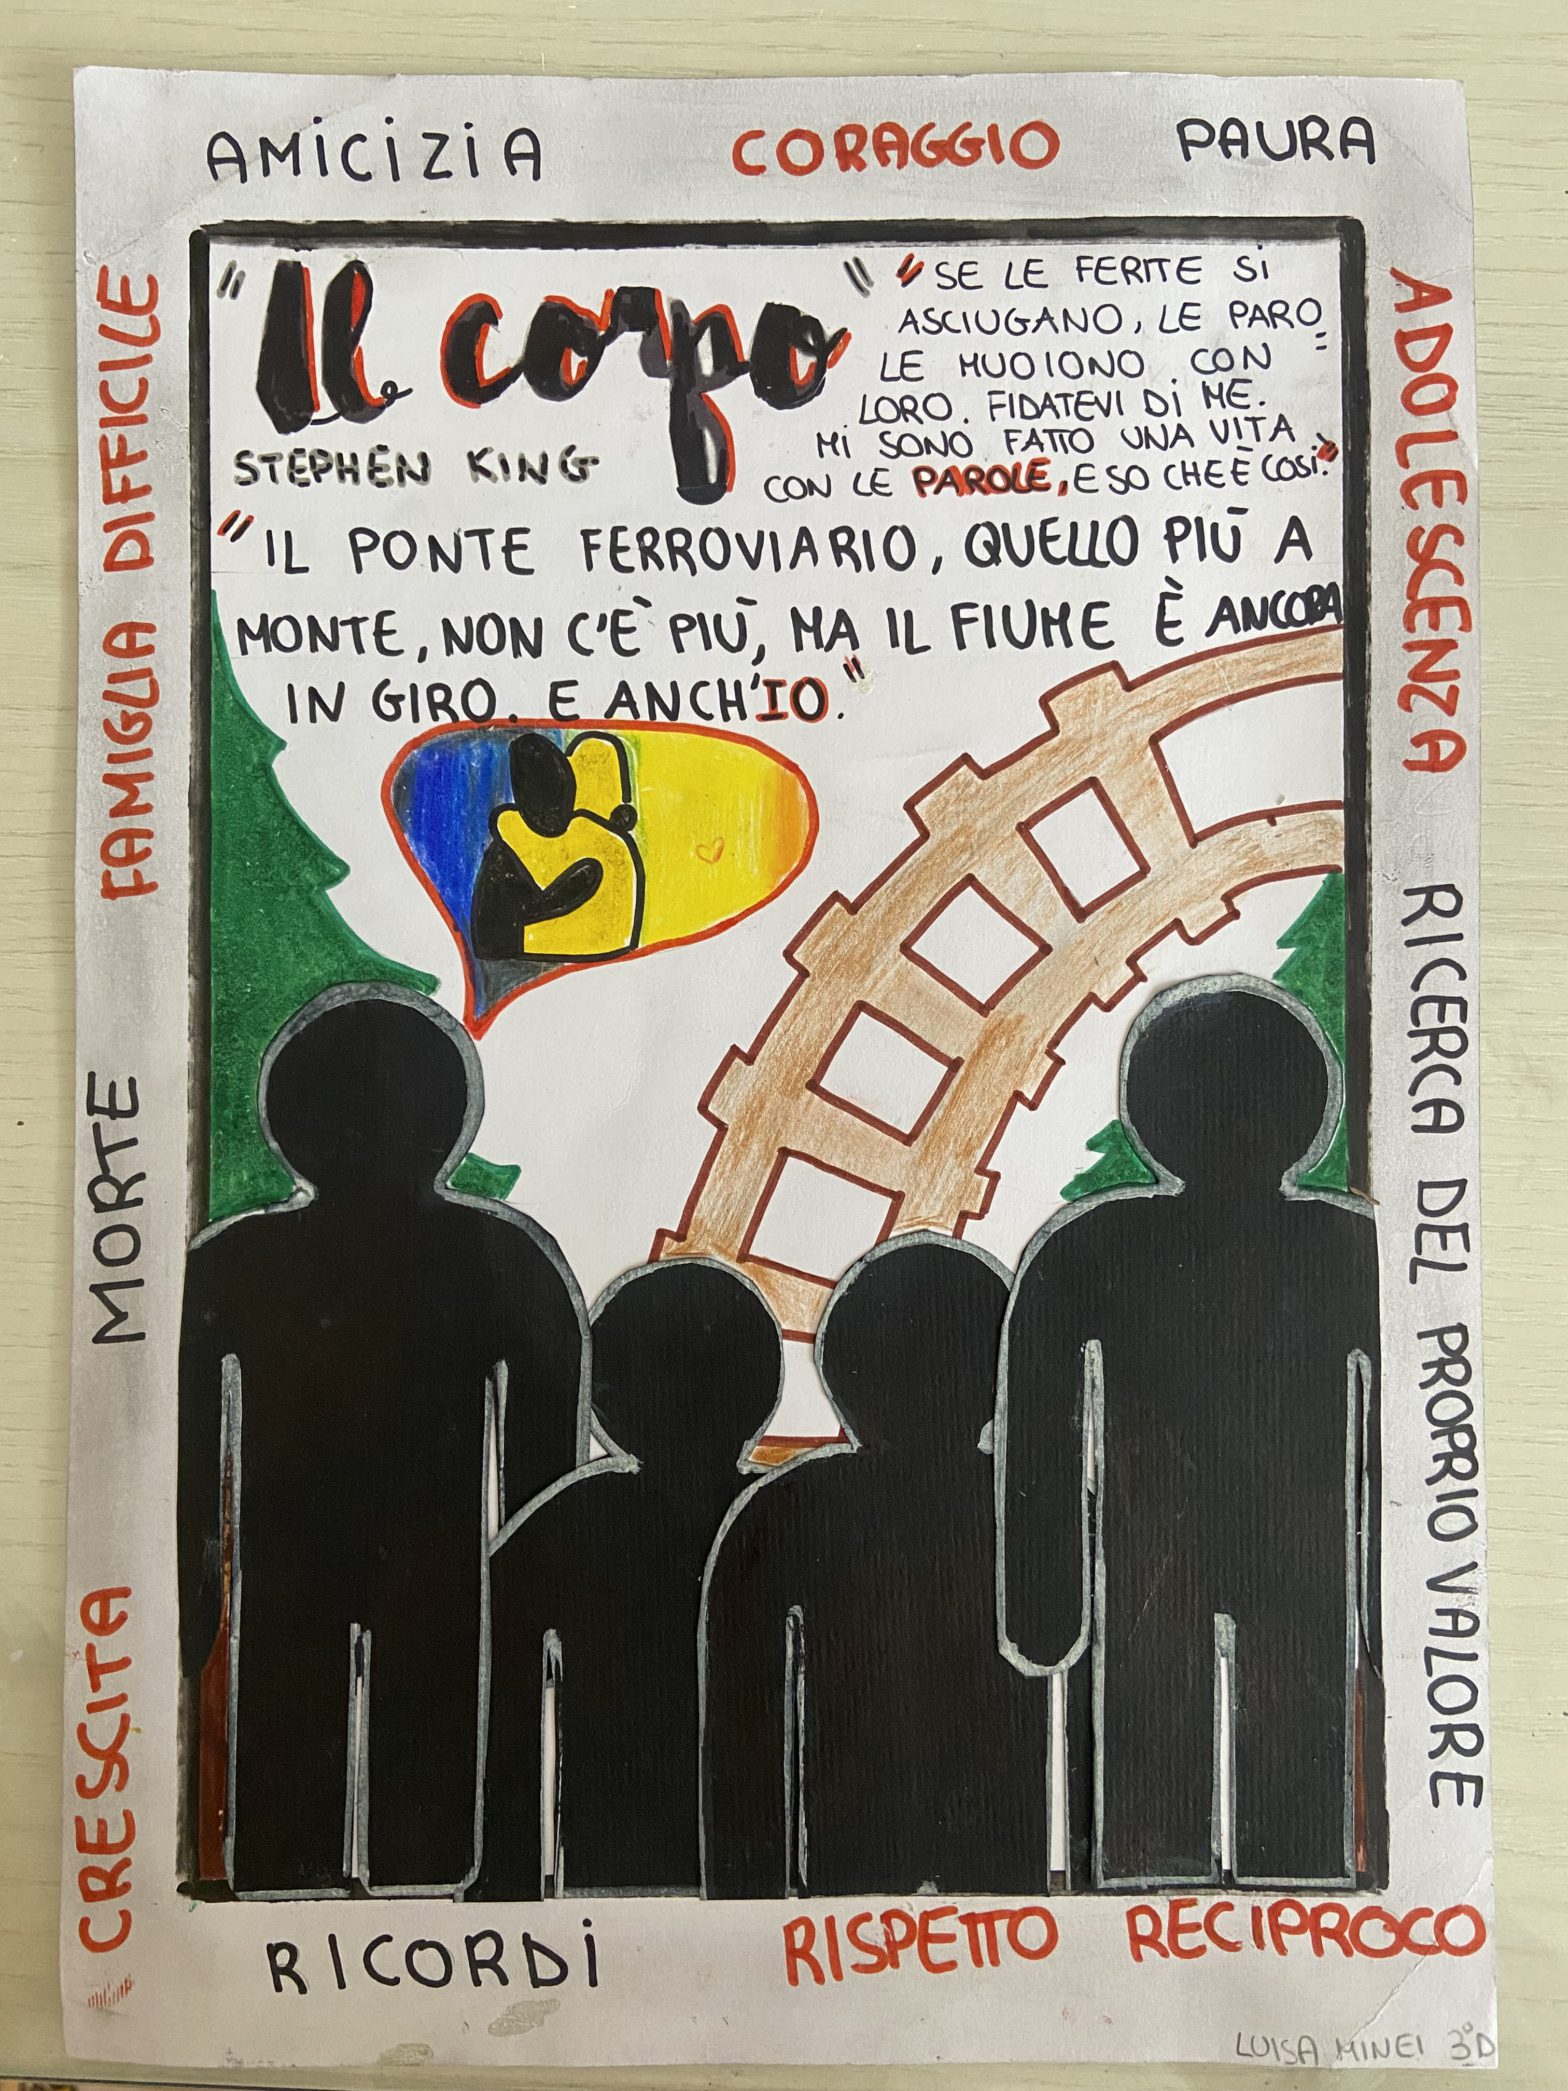 AMICIZIA CORAGGIO PAURA
"Il corpo"
STEPHEN KING
"SE LE FERITE SI
ASCIUGANO, LE PARO=
LE MUOIONO CON
LORO. FIDATEVI DI ME.
MI SONO FATTO UNA VITA
CON LE PAROLE, E SO CHE È COSÌ."
"IL PONTE FERROVIARIO, QUELLO PIÙ A
MONTE, NON C'È PIÙ, MA IL FIUME È ANCORA
IN GIRO. E ANCH'IO."
FAMIGLIA DIFFICILE
MORTE
CRESCITA
ADOLESCENZA
RICERCA DEL PROPRIO VALORE
RICORDI RISPETTO RECIPROCO
LUISA MINEI 3°D